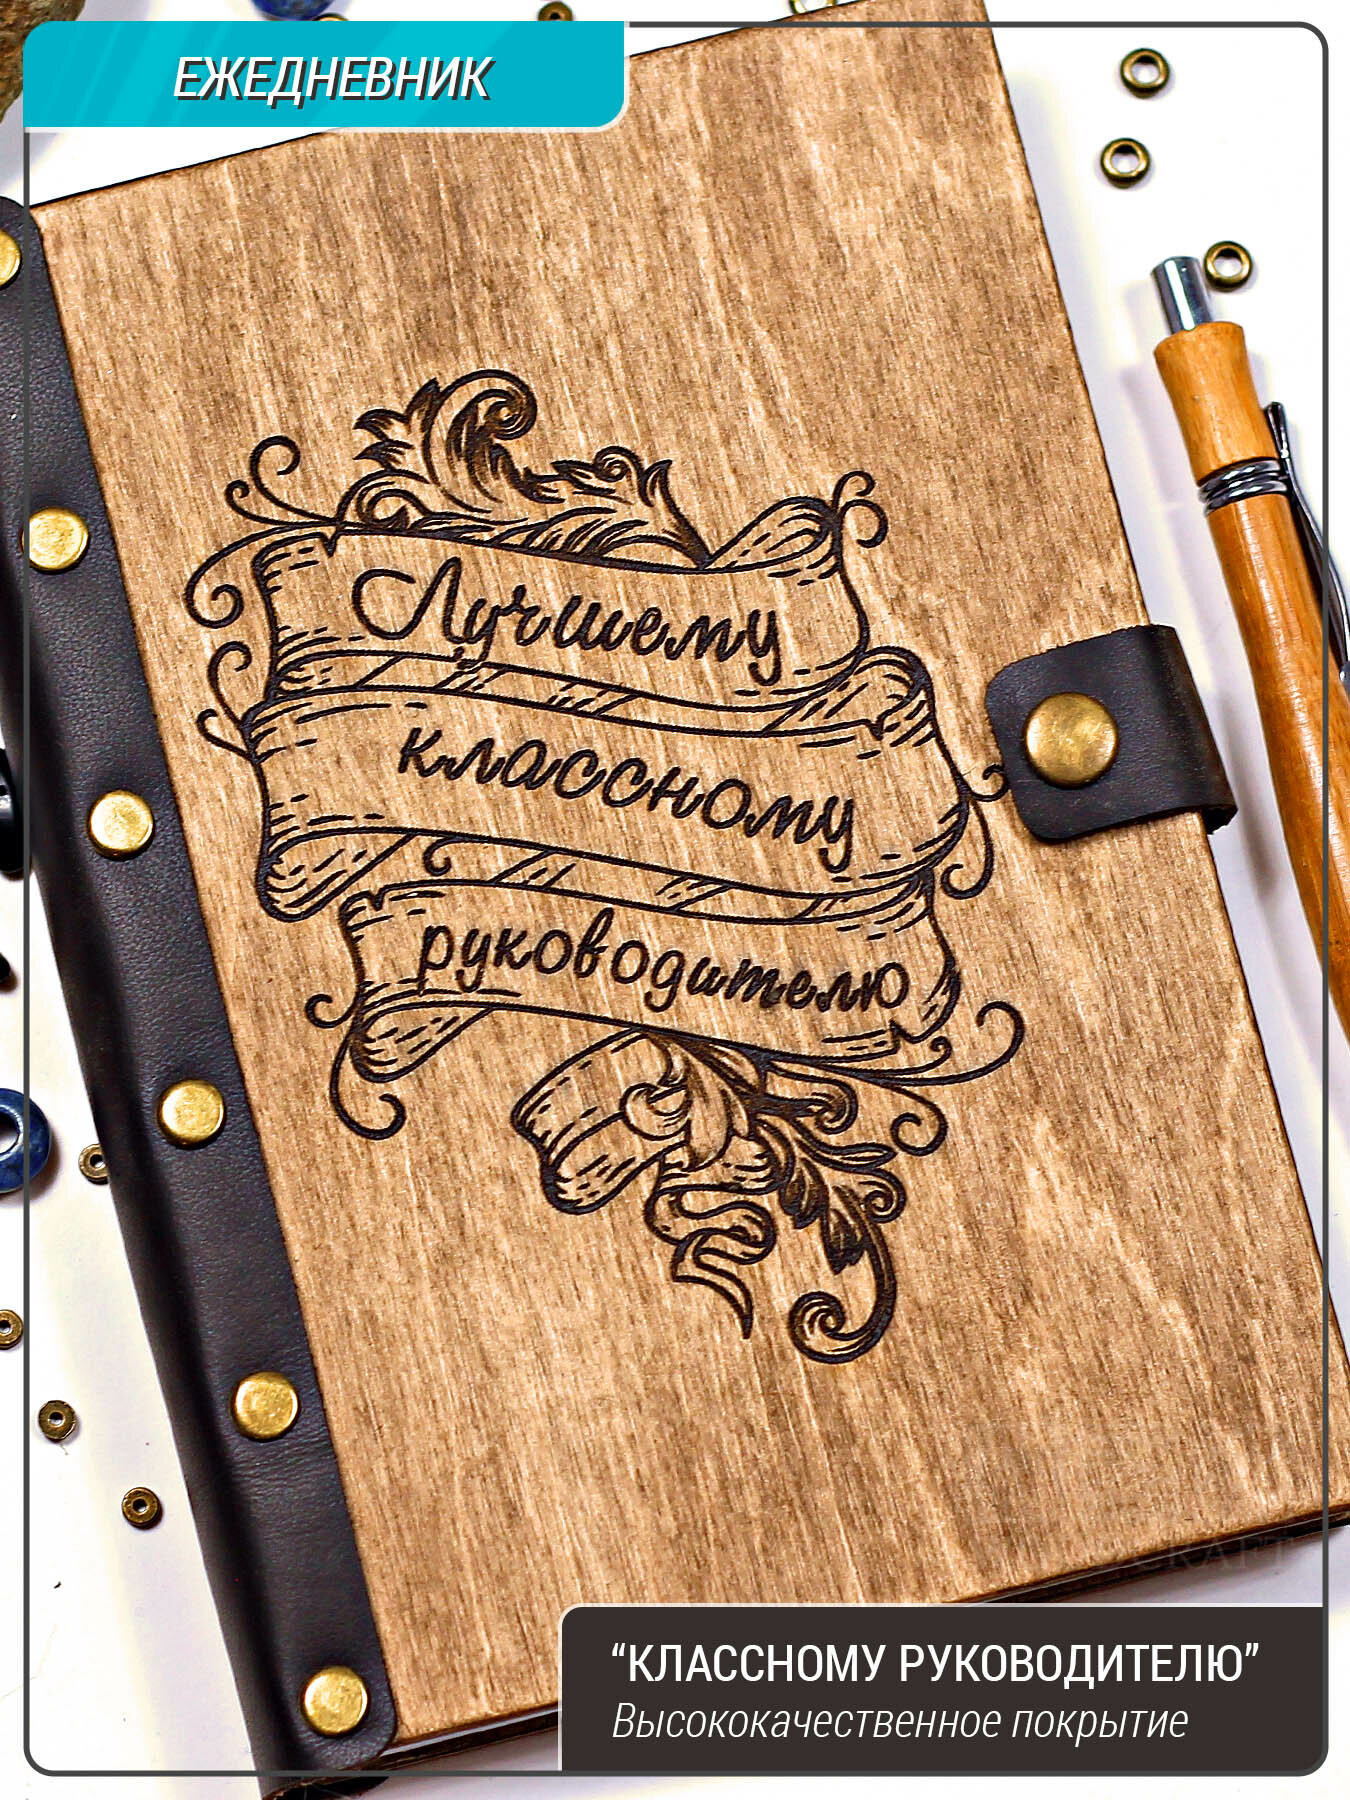 ЕЖЕДНЕВНИК
Лучшему
классному
руководителю
“КЛАССНОМУ РУКОВОДИТЕЛЮ”
Высококачественное покрытие